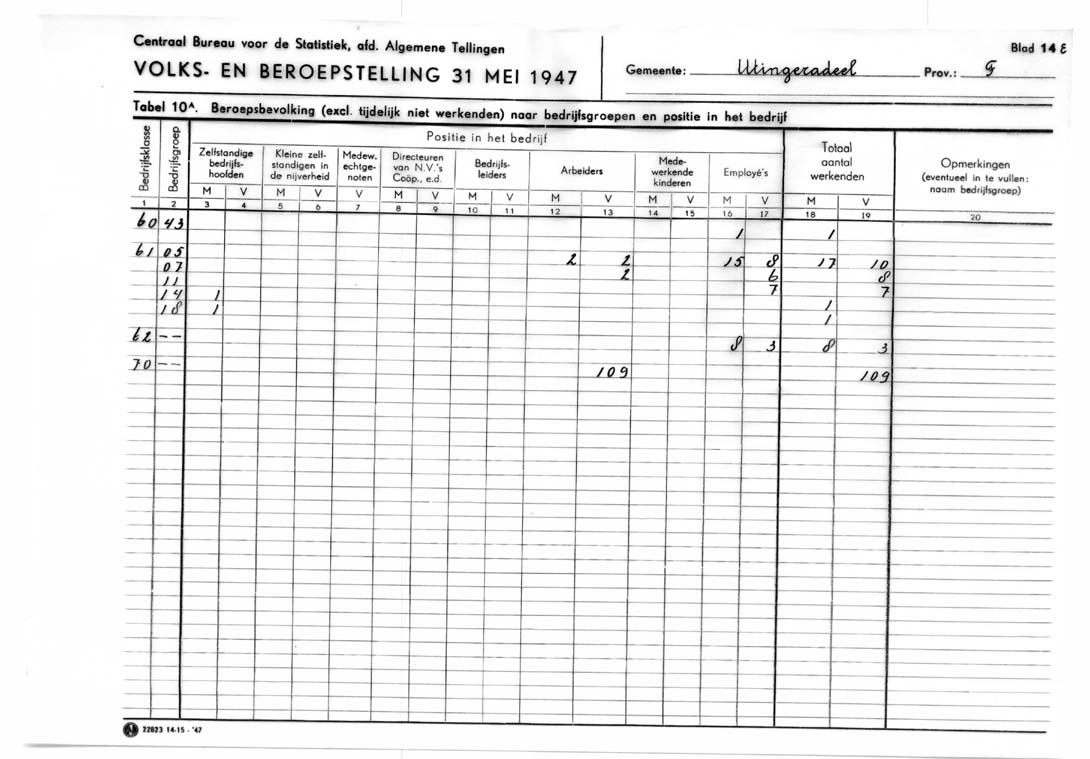 Centraal Bureau voor de Statistiek, afd. Algemene Tellingen
Blad 14 E
VOLKS- EN BEROEPSTELLING 31 MEI 1947
Gemeente: Utingeradeel Prov.: F
Tabel 10A. Beroepsbevolking (excl. tijdelijk niet werkenden) naar bedrijfsgroepen en positie in het bedrijf
Bedrijfsklasse
Bedrijfsgroep
Positie in het bedrijf
Zelfstandige bedrijfs- hoofden
Kleine zelf- standigen in de nijverheid
Medew. echtge- noten
Directeuren van N.V.'s Coöp., e.d.
Bedrijfs- leiders
Arbeiders
Mede- werkende kinderen
Employé's
Totaal aantal werkenden
Opmerkingen (eventueel in te vullen: naam bedrijfsgroep)
M V M V V M V M V M V M V M V M V
1 2 3 4 5 6 7 8 9 10 11 12 13 14 15 16 17 18 19 20
60 43 1 1
61 05 2 2 15 8 17 10
07 2 6 8
11 7 7
14 1 1
18 1 1
62 -- 8 3 8 3
70 -- 109 109
22823 14-15 - '47